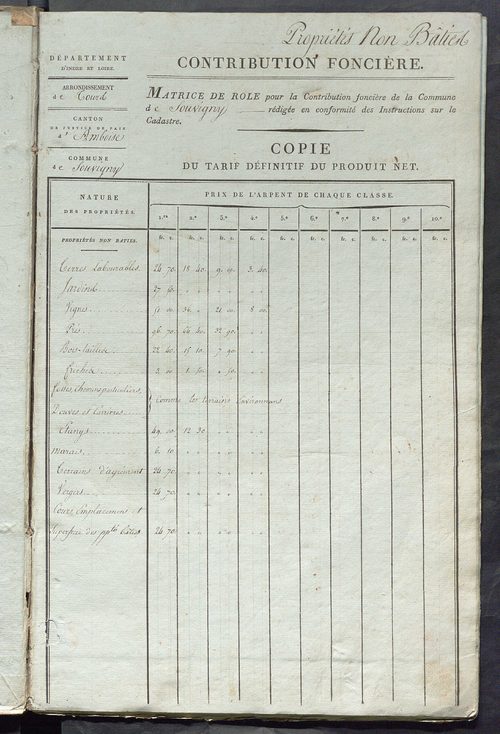 Propriétés Non Bâties
DÉPARTEMENT
D'INDRE ET LOIRE.
ARRONDISSEMENT
de Tours
CANTON
DE JUSTICE DE PAIX
d'Amboise
COMMUNE
de Souvigny
CONTRIBUTION FONCIÈRE.
MATRICE DE ROLE pour la Contribution foncière de la Commune
de Souvigny rédigée en conformité des Instructions sur le
Cadastre.
COPIE
DU TARIF DÉFINITIF DU PRODUIT NET.
NATURE
DES PROPRIÉTÉS.
PRIX DE L'ARPENT DE CHAQUE CLASSE.
1.re 2.e 3.e 4.e 5.e 6.e 7.e 8.e 9.e 10.e
PROPRIÉTÉS NON BATIES.
fr. c. fr. c. fr. c. fr. c. fr. c. fr. c. fr. c. fr. c. fr. c. fr. c.
Terres labourables 24 70 18 40 3 40
Jardins
Vignes
Prés 96 70 64 40 32 90
Bois taillis 22 40 15 10
friches
fosses, Chemins particuliers,
Douves et Carrières
Comme les terrains Environnans
Etangs 49 12 30
Marais 6 10
Terrains d'agrément 24 70
Vergers 24 70
Cours, Emplacemens et
Superficie des pptés Bâties 24 70